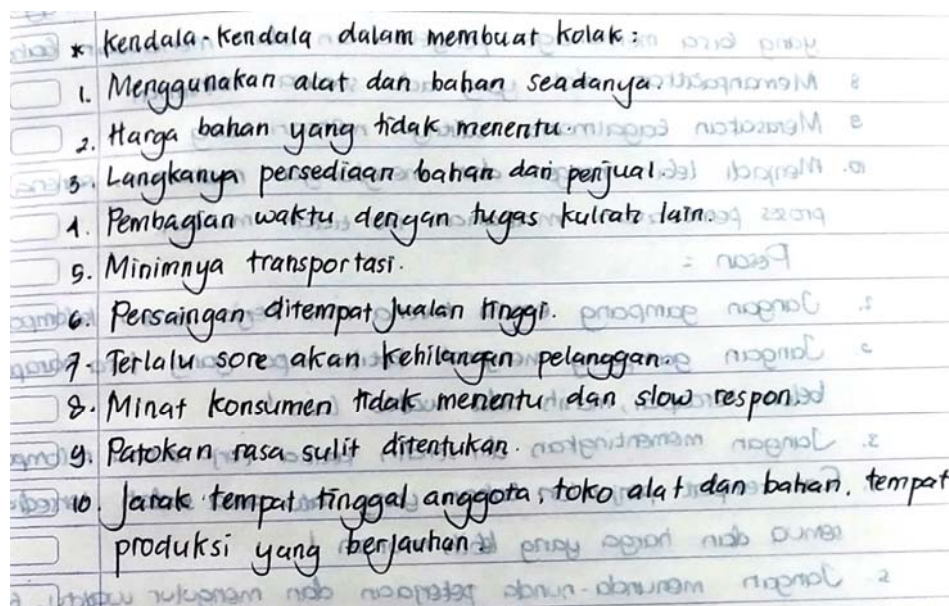 * Kendala-Kendala dalam membuat kolak :
1. Menggunakan alat dan bahan seadanya.
2. Harga bahan yang tidak menentu.
3. Langkanya persediaan bahan dari penjual.
4. Pembagian waktu dengan tugas kuliah lain.
5. Minimnya transportasi.
6. Persaingan ditempat jualan tinggi.
7. Terlalu sore akan kehilangan pelanggan.
8. Minat konsumen tidak menentu dan slow respon.
9. Patokan rasa sulit ditentukan.
10. Jarak tempat tinggal anggota, toko alat dan bahan, tempat
produksi yang berjauhan.